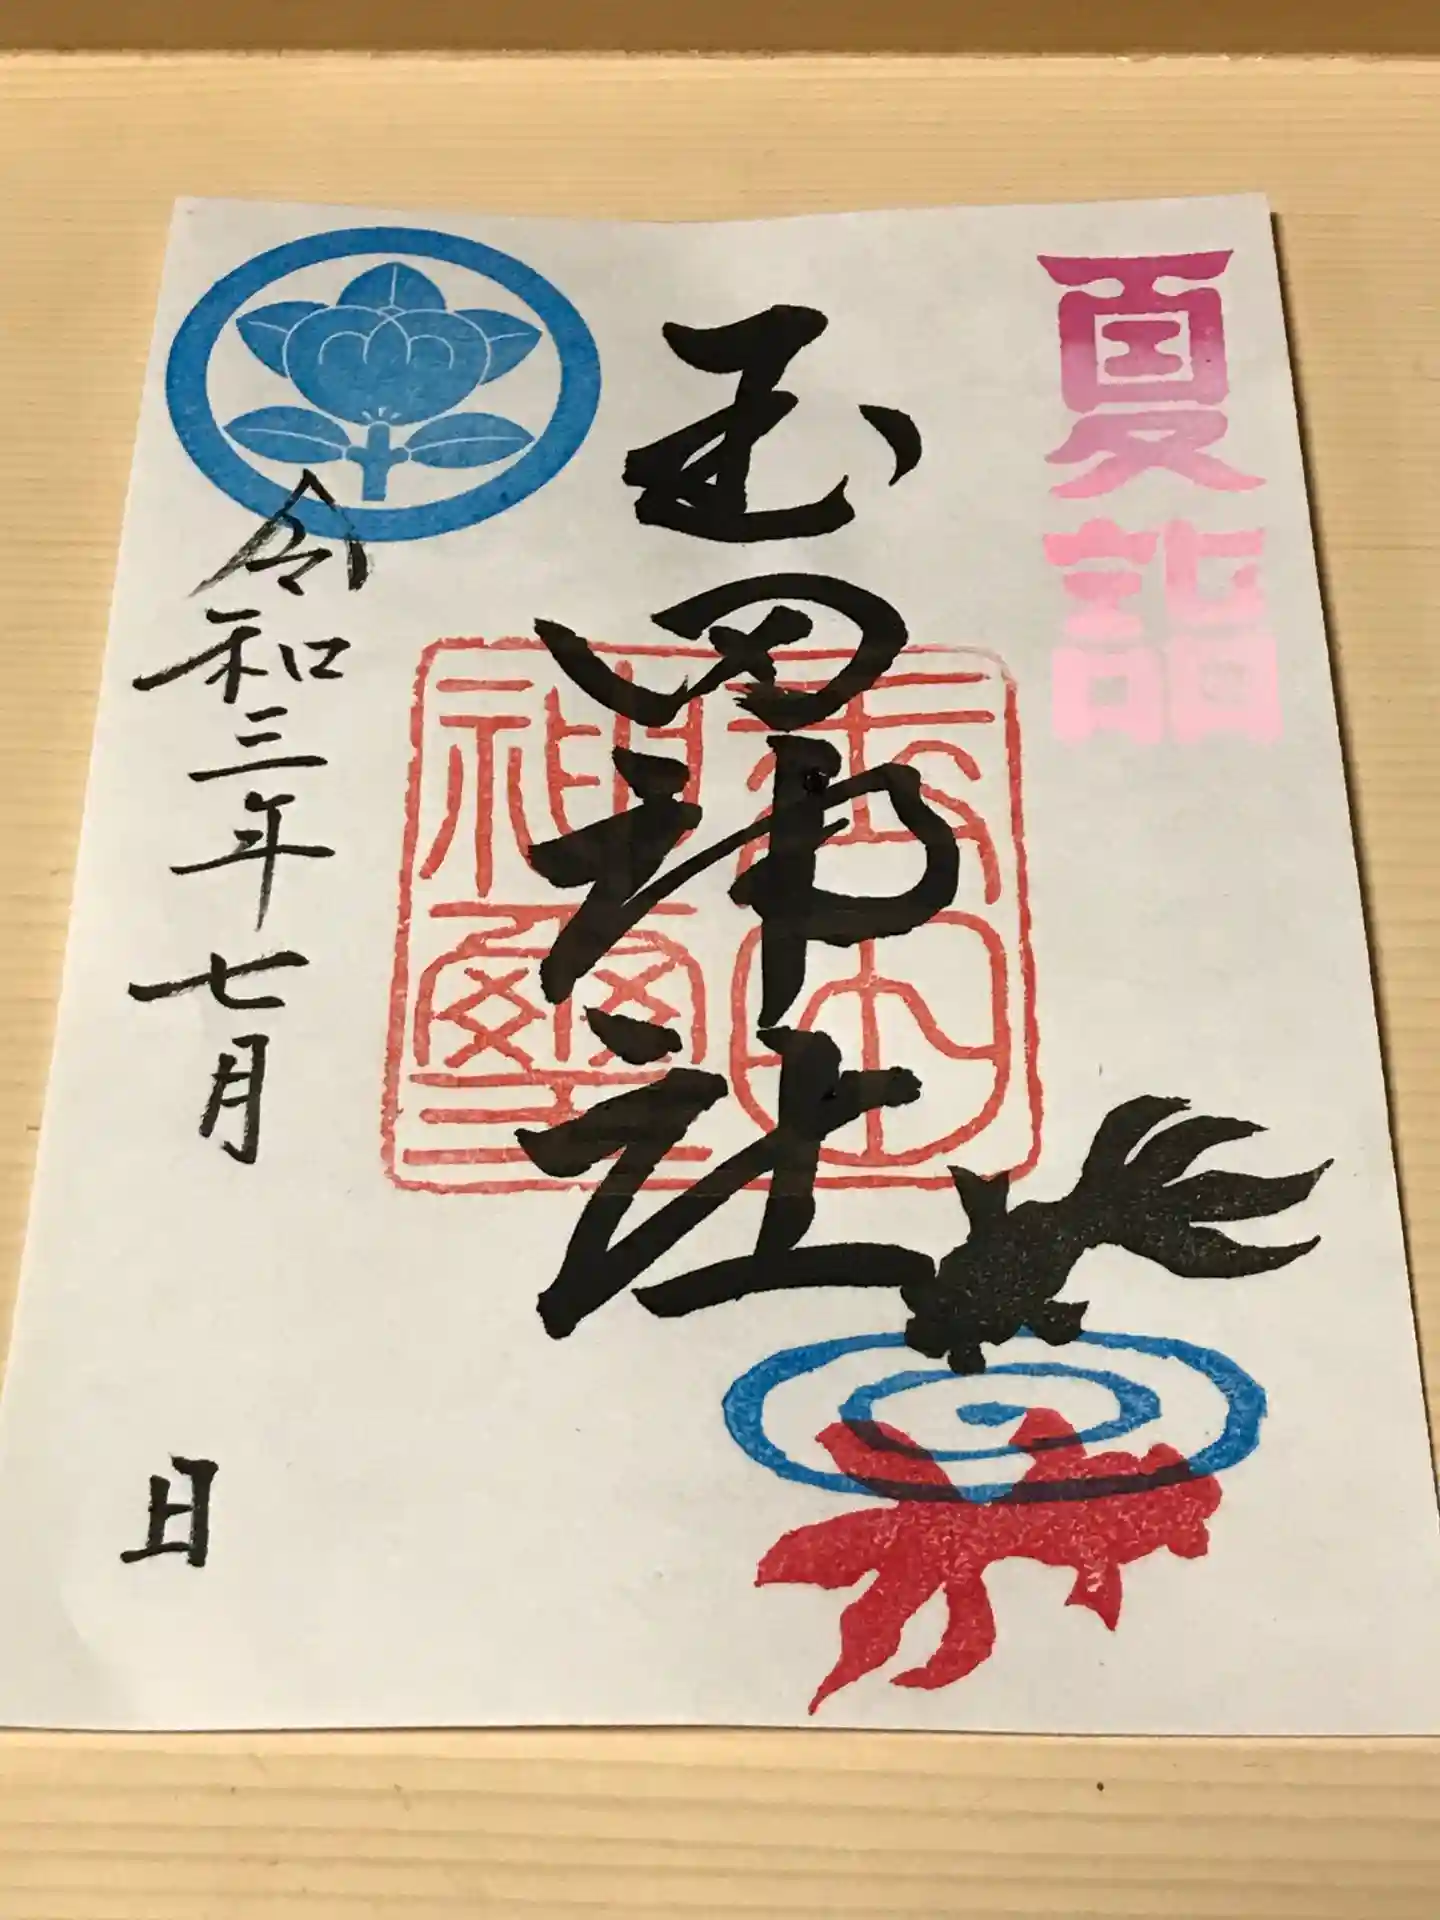 夏詣
玉田神社
玉田
神璽
令和三年七月 日